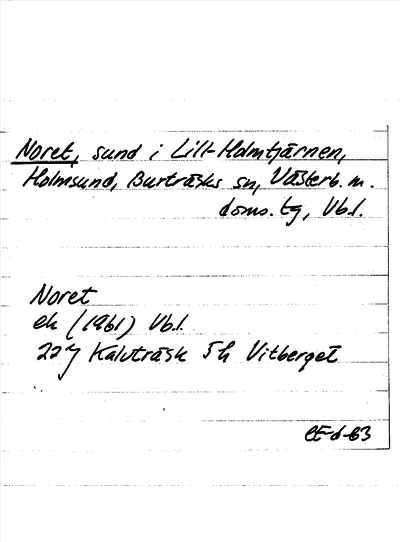 Noret, sund i Lill-Holmtjärnen,
Holmsund, Burträsks sn, Västerb. m.
doms. tg, Vb.l.
Noret
ek (1961) Vb.l.
22 J Kalvträsk 5 h Vitberget